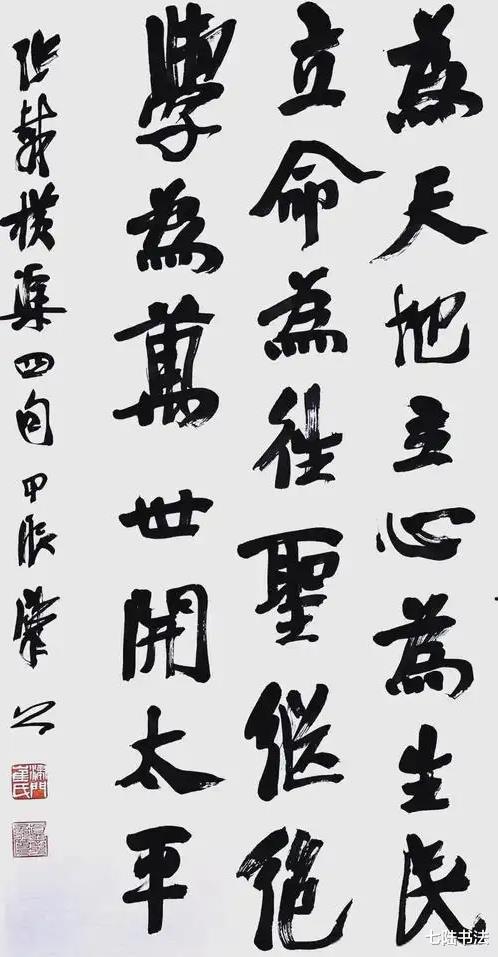 為天地立心為生民
立命為往聖継绝
學為萬世開太平
張載横渠四句甲辰
七陆书法